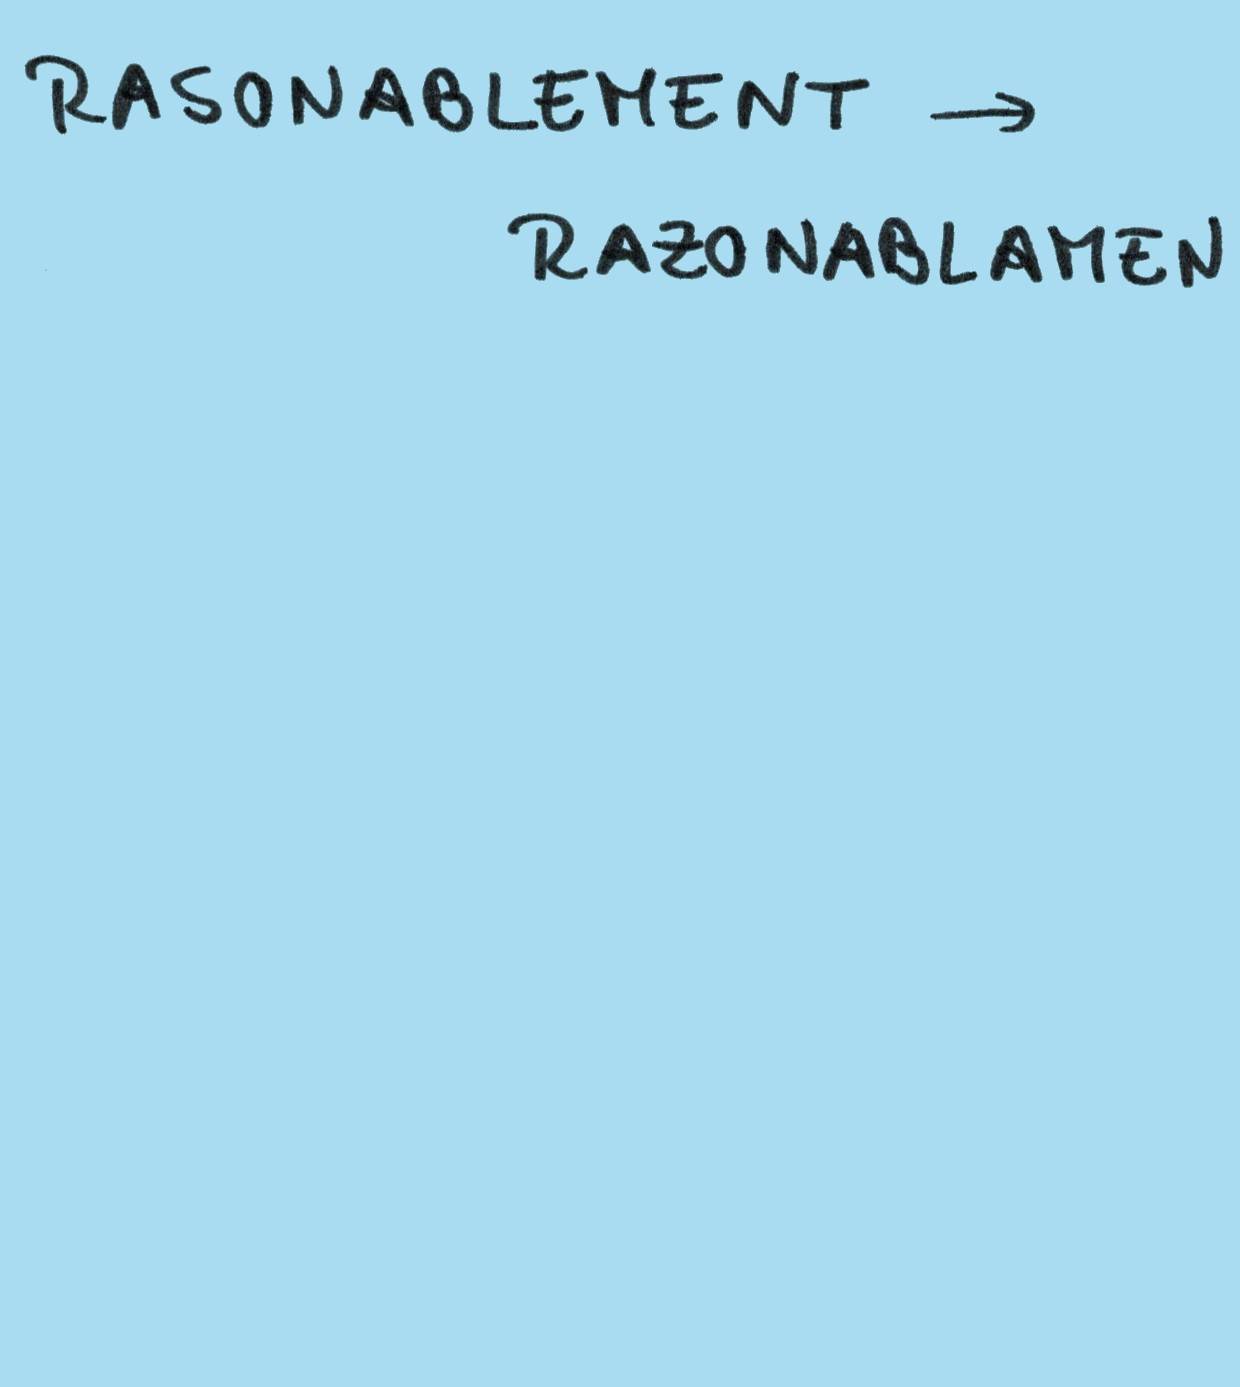 RASONABLEMENT →
RAZONABLAMEN